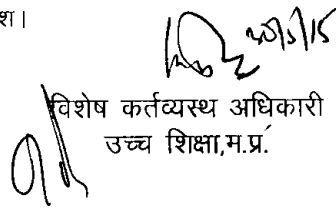 श।
विशेष कर्तव्यस्थ अधिकारी
उच्च शिक्षा,म.प्र.